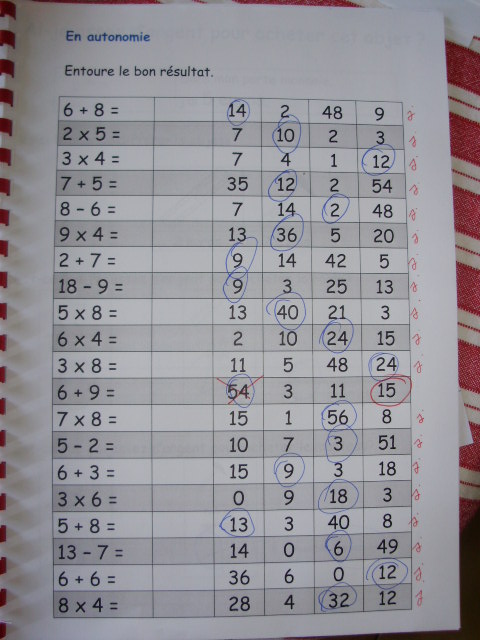 En autonomie
Entoure le bon résultat.
6 + 8 = 14 2 48 9 j
2 x 5 = 7 10 2 3 j
3 x 4 = 7 4 1 12 j
7 + 5 = 35 12 2 54 j
8 - 6 = 7 14 2 48 j
9 x 4 = 13 36 5 20 j
2 + 7 = 9 14 42 5 j
18 - 9 = 9 3 25 13 j
5 x 8 = 13 40 21 3 j
6 x 4 = 2 10 24 15 j
3 x 8 = 11 5 48 24 j
6 + 9 = 54 3 11 15
7 x 8 = 15 1 56 8 j
5 - 2 = 10 7 3 51 j
6 + 3 = 15 9 3 18 j
3 x 6 = 0 9 18 3 j
5 + 8 = 13 3 40 8 j
13 - 7 = 14 0 6 49 j
6 + 6 = 36 6 0 12 j
8 x 4 = 28 4 32 12 j